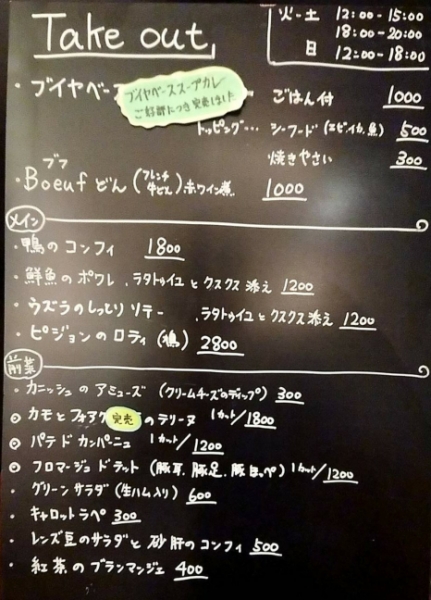 Take out
火-土 12:00-15:00
18:00-20:00
日 12:00-18:00
・ブイヤベー
ブイヤベーススープカレー
ご好評につき完売しました
ごはん付 1000
トッピング… シーフード(エビ,イカ,魚) 500
焼きやさい 300
ブフ
・Boeufどん(フレンチ牛どん)赤ワイン煮 1000
メイン
・鴨のコンフィ 1800
・鮮魚のポワレ、ラタトゥイユとクスクス添え 1200
・ウズラのしっとりソテー 、ラタトゥイユとクスクス添え 1200
・ピジョンのロティ(鳩) 2800
前菜
・カニッシュのアミューズ(クリームチーズのディップ) 300
◎カモとフォアグ 完売 のテリーヌ 1カット/1800
◎パテドカンパーニュ 1カット/1200
◎フロマージュドテット(豚耳.豚足.豚ほっぺ)1カット/1200
・グリーンサラダ(生ハム入り) 600
・キャロットラペ 300
・レンズ豆のサラダと砂肝のコンフィ 500
・紅茶のブランマンジェ 400